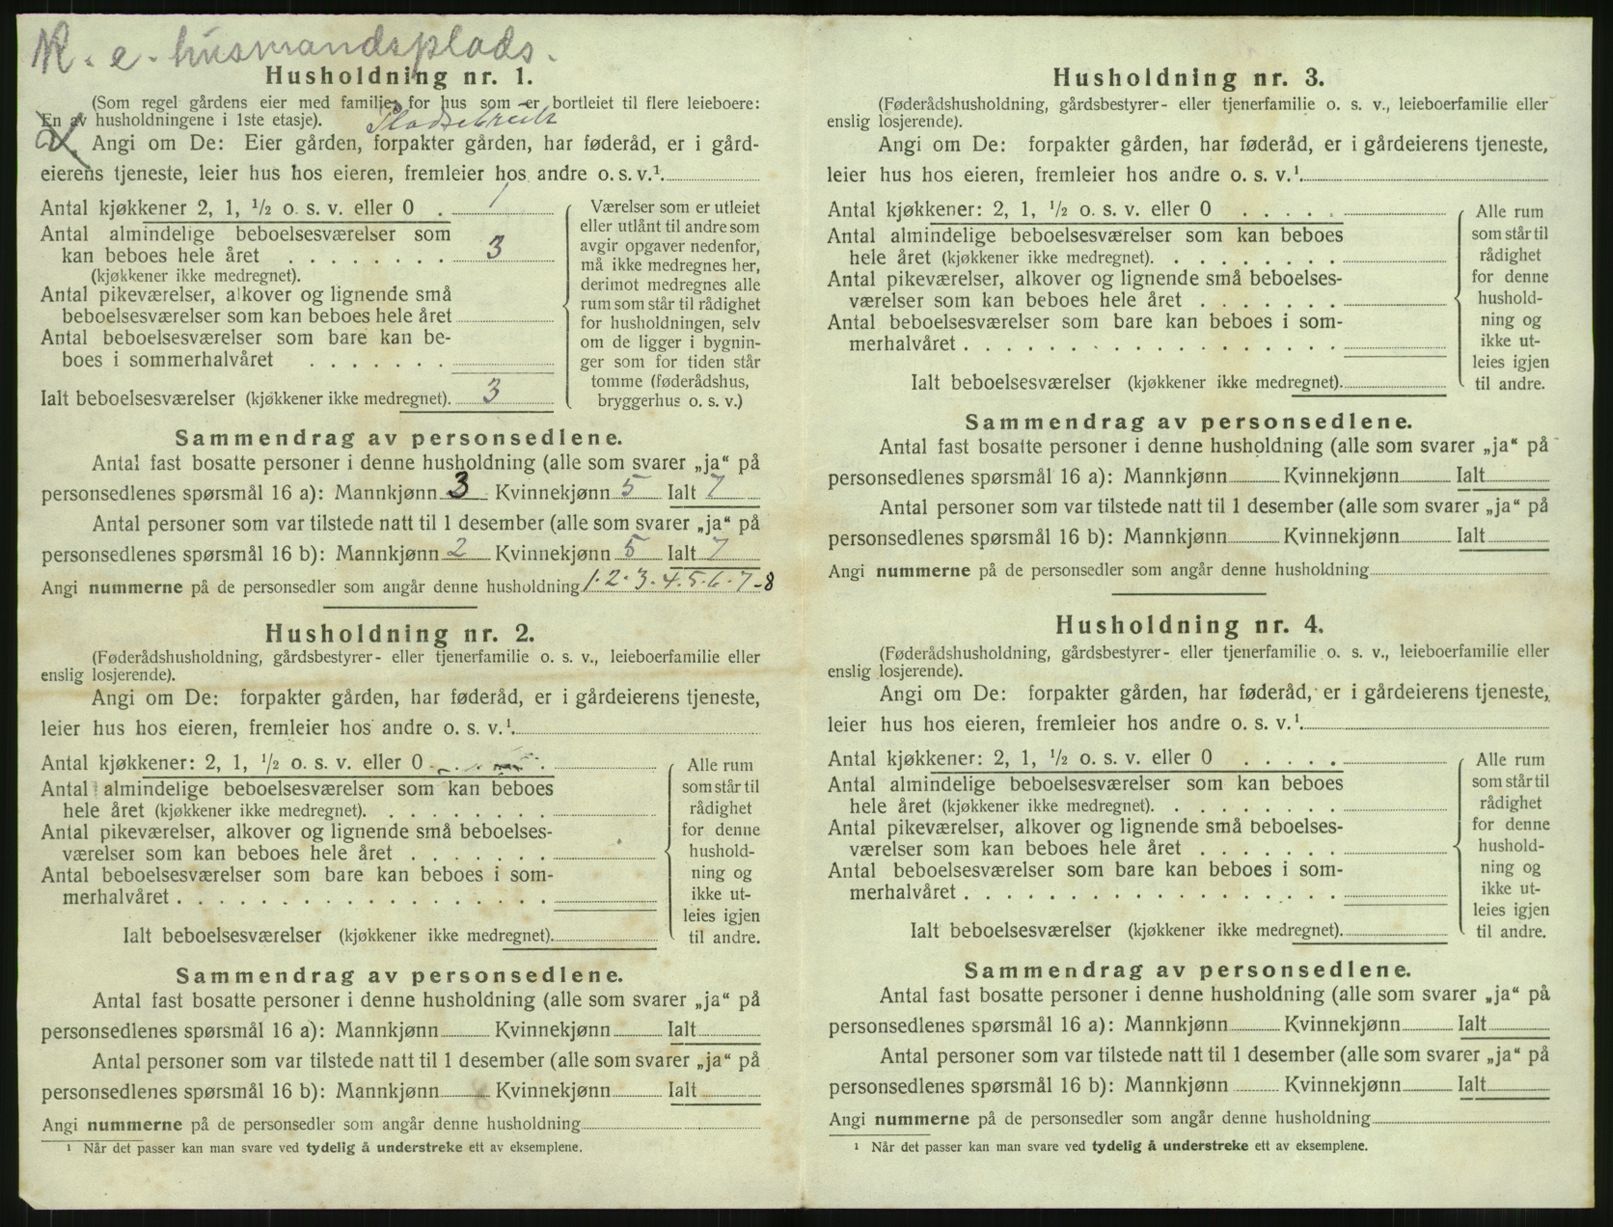 K. e. husmandsplads.
Husholdning nr. 1.
(Som regel gårdens eier med familie, for hus som er bortleiet til flere leieboere:
En av husholdningene i 1ste etasje).
Angi om De: Eier gården, forpakter gården, har føderåd, er i gård-
eierens tjeneste, leier hus hos eieren, fremleier hos andre o. s. v.¹
Antal kjøkkener 2, 1, ½ o. s. v. eller 0 . 1
Antal almindelige beboelsesværelser som
kan beboes hele året . . . . . . . . 3
(kjøkkener ikke medregnet).
Antal pikeværelser, alkover og lignende små
beboelsesværelser som kan beboes hele året
Antal beboelsesværelser som bare kan be-
boes i sommerhalvåret . . . . . . .
Ialt beboelsesværelser (kjøkkener ikke medregnet). 3
Værelser som er utleiet
eller utlånt til andre som
avgir opgaver nedenfor,
må ikke medregnes her,
derimot medregnes alle
rum som står til rådighet
for husholdningen, selv
om de ligger i bygnin-
ger som for tiden står
tomme (føderådshus,
bryggerhus o. s. v.)
Sammendrag av personsedlene.
Antal fast bosatte personer i denne husholdning (alle som svarer „ja“ på
personsedlenes spørsmål 16 a): Mannkjønn 3 Kvinnekjønn 5 Ialt 7
Antal personer som var tilstede natt til 1 desember (alle som svarer „ja“ på
personsedlenes spørsmål 16 b): Mannkjønn 2 Kvinnekjønn 5 Ialt 7
Angi nummerne på de personsedler som angår denne husholdning 1.2.3.4.5.6.7-8
Husholdning nr. 2.
(Føderådshusholdning, gårdsbestyrer- eller tjenerfamilie o. s. v., leieboerfamilie eller
enslig losjerende).
Angi om De: forpakter gården, har føderåd, er i gårdeierens tjeneste,
leier hus hos eieren, fremleier hos andre o. s. v.¹
Antal kjøkkener: 2, 1, ½ o. s. v. eller 0 . . . .
Antal almindelige beboelsesværelser som kan beboes
hele året (kjøkkener ikke medregnet). . . . . . . . .
Antal pikeværelser, alkover og lignende små beboelses-
værelser som kan beboes hele året . . . . . . .
Antal beboelsesværelser som bare kan beboes i som-
merhalvåret . . . . . . . . . . . . . . . . . .
Ialt beboelsesværelser (kjøkkener ikke medregnet).
Alle rum
som står til
rådighet
for denne
hushold-
ning og
ikke ut-
leies igjen
til andre.
Sammendrag av personsedlene.
Antal fast bosatte personer i denne husholdning (alle som svarer „ja“ på
personsedlenes spørsmål 16 a): Mannkjønn Kvinnekjønn Ialt
Antal personer som var tilstede natt til 1 desember (alle som svarer „ja“ på
personsedlenes spørsmål 16 b): Mannkjønn Kvinnekjønn Ialt
Angi nummerne på de personsedler som angår denne husholdning
¹ Når det passer kan man svare ved tydelig å understreke ett av eksemplene.
Husholdning nr. 3.
(Føderådshusholdning, gårdsbestyrer- eller tjenerfamilie o. s. v., leieboerfamilie eller
enslig losjerende).
Angi om De: forpakter gården, har føderåd, er i gårdeierens tjeneste,
leier hus hos eieren, fremleier hos andre o. s. v.¹
Antal kjøkkener: 2, 1, ½ o. s. v. eller 0 . . . . .
Antal almindelige beboelsesværelser som kan beboes
hele året (kjøkkener ikke medregnet). . . . . . . . .
Antal pikeværelser, alkover og lignende små beboelses-
værelser som kan beboes hele året . . . . . . .
Antal beboelsesværelser som bare kan beboes i som-
merhalvåret . . . . . . . . . . . . . . . . . .
Ialt beboelsesværelser (kjøkkener ikke medregnet).
Alle rum
som står til
rådighet
for denne
hushold-
ning og
ikke ut-
leies igjen
til andre.
Sammendrag av personsedlene.
Antal fast bosatte personer i denne husholdning (alle som svarer „ja“ på
personsedlenes spørsmål 16 a): Mannkjønn Kvinnekjønn Ialt
Antal personer som var tilstede natt til 1 desember (alle som svarer „ja“ på
personsedlenes spørsmål 16 b): Mannkjønn Kvinnekjønn Ialt
Angi nummerne på de personsedler som angår denne husholdning
Husholdning nr. 4.
(Føderådshusholdning, gårdsbestyrer- eller tjenerfamilie o. s. v., leieboerfamilie eller
enslig losjerende).
Angi om De: forpakter gården, har føderåd, er i gårdeierens tjeneste,
leier hus hos eieren, fremleier hos andre o. s. v.¹
Antal kjøkkener: 2, 1, ½ o. s. v. eller 0 . . . . .
Antal almindelige beboelsesværelser som kan beboes
hele året (kjøkkener ikke medregnet). . . . . . . . .
Antal pikeværelser, alkover og lignende små beboelses-
værelser som kan beboes hele året . . . . . . .
Antal beboelsesværelser som bare kan beboes i som-
merhalvåret . . . . . . . . . . . . . . . . . .
Ialt beboelsesværelser (kjøkkener ikke medregnet).
Alle rum
som står til
rådighet
for denne
hushold-
ning og
ikke ut-
leies igjen
til andre.
Sammendrag av personsedlene.
Antal fast bosatte personer i denne husholdning (alle som svarer „ja“ på
personsedlenes spørsmål 16 a): Mannkjønn Kvinnekjønn Ialt
Antal personer som var tilstede natt til 1 desember (alle som svarer „ja“ på
personsedlenes spørsmål 16 b): Mannkjønn Kvinnekjønn Ialt
Angi nummerne på de personsedler som angår denne husholdning
¹ Når det passer kan man svare ved tydelig å understreke ett av eksemplene.